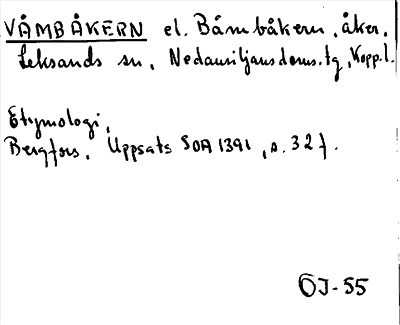 VÅMBÅKERN el. Båmbåkern, åker.
Leksands sn, Nedansiljans doms. tg, Kopp. l.
Etymologi,
Bergfors, Uppsats SOA 1391, s. 32 f.
ÖJ-55